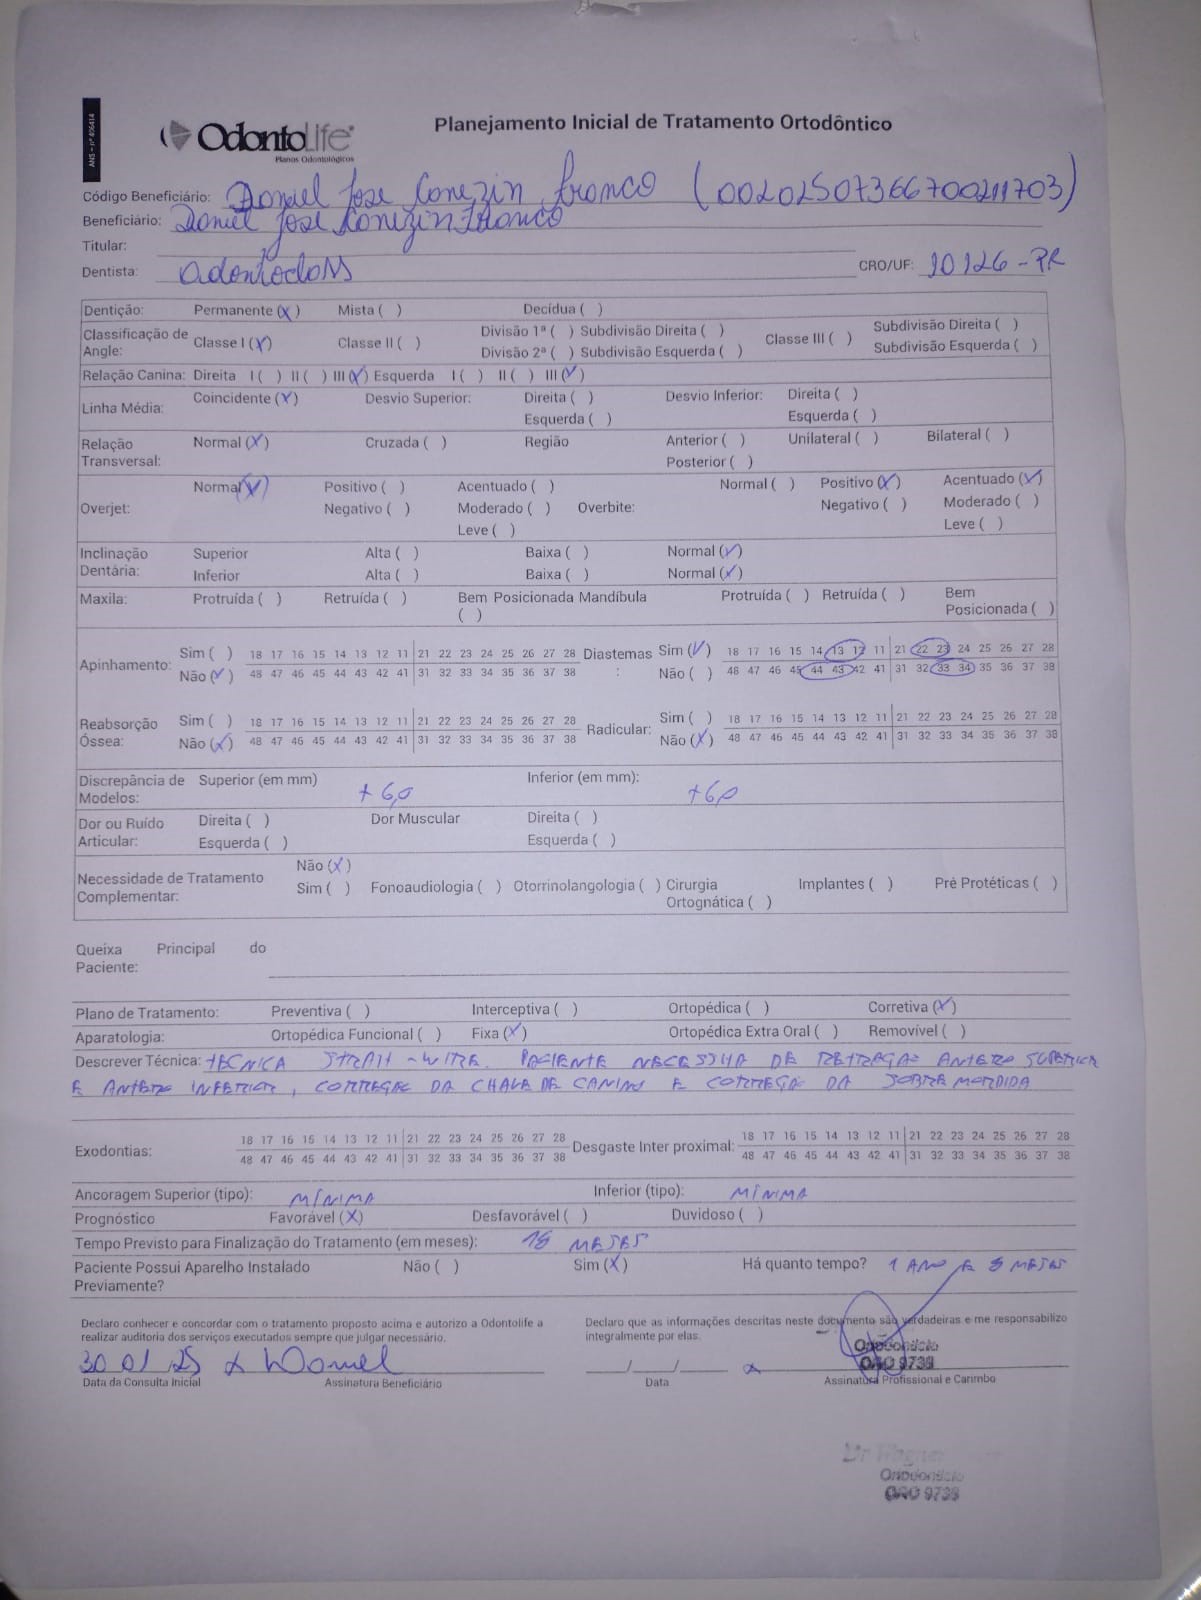 ANS - nº 406414
OdontoLife
Planos Odontológicos
Planejamento Inicial de Tratamento Ortodôntico
Código Beneficiário: Daniel Jose Conezin Franco (00202507366700211703)
Beneficiário: Daniel Jose Conezin Franco
Titular:
Dentista: Odontoclass CRO/UF: 10126-PR
Dentição: Permanente (X) Mista ( ) Decídua ( )
Classificação de Angle: Classe I (X) Classe II ( ) Divisão 1ª ( ) Subdivisão Direita ( ) Divisão 2ª ( ) Subdivisão Esquerda ( ) Classe III ( ) Subdivisão Direita ( ) Subdivisão Esquerda ( )
Relação Canina: Direita I ( ) II ( ) III (X) Esquerda I ( ) II ( ) III (X)
Linha Média: Coincidente (X) Desvio Superior: Direita ( ) Esquerda ( ) Desvio Inferior: Direita ( ) Esquerda ( )
Relação Transversal: Normal (X) Cruzada ( ) Região Anterior ( ) Posterior ( ) Unilateral ( ) Bilateral ( )
Overjet: Normal (X) Positivo ( ) Negativo ( ) Acentuado ( ) Moderado ( ) Leve ( ) Overbite: Normal ( ) Positivo (X) Negativo ( ) Acentuado (X) Moderado ( ) Leve ( )
Inclinação Dentária: Superior Alta ( ) Baixa ( ) Normal (X)
Inferior Alta ( ) Baixa ( ) Normal (X)
Maxila: Protruída ( ) Retruída ( ) Bem Posicionada ( ) Mandíbula Protruída ( ) Retruída ( ) Bem Posicionada ( )
Apinhamento: Sim ( ) 18 17 16 15 14 13 12 11 21 22 23 24 25 26 27 28 Diastemas : Sim (X) 18 17 16 15 14 13 12 11 21 22 23 24 25 26 27 28
Não (X) 48 47 46 45 44 43 42 41 31 32 33 34 35 36 37 38 Não ( ) 48 47 46 45 44 43 42 41 31 32 33 34 35 36 37 38
Reabsorção Óssea: Sim ( ) 18 17 16 15 14 13 12 11 21 22 23 24 25 26 27 28 Radicular: Sim ( ) 18 17 16 15 14 13 12 11 21 22 23 24 25 26 27 28
Não (X) 48 47 46 45 44 43 42 41 31 32 33 34 35 36 37 38 Não (X) 48 47 46 45 44 43 42 41 31 32 33 34 35 36 37 38
Discrepância de Modelos: Superior (em mm) +6,0 Inferior (em mm): +6,0
Dor ou Ruído Articular: Direita ( ) Esquerda ( ) Dor Muscular Direita ( ) Esquerda ( )
Necessidade de Tratamento Complementar: Não (X)
Sim ( ) Fonoaudiologia ( ) Otorrinolangologia ( ) Cirurgia Ortognática ( ) Implantes ( ) Pré Protéticas ( )
Queixa Principal do Paciente:
Plano de Tratamento: Preventiva ( ) Interceptiva ( ) Ortopédica ( ) Corretiva (X)
Aparatologia: Ortopédica Funcional ( ) Fixa (X) Ortopédica Extra Oral ( ) Removível ( )
Descrever Técnica: TÉCNICA STRAIT-WIRE. PACIENTE NECESSITA DE RETRAÇÃO ANTERO SUPERIOR
E ANTERO INFERIOR, CORREÇÃO DA CHAVE DE CANINO E CORREÇÃO DA SOBREMORDIDA
Exodontias: 18 17 16 15 14 13 12 11 21 22 23 24 25 26 27 28 Desgaste Inter proximal: 18 17 16 15 14 13 12 11 21 22 23 24 25 26 27 28
48 47 46 45 44 43 42 41 31 32 33 34 35 36 37 38 48 47 46 45 44 43 42 41 31 32 33 34 35 36 37 38
Ancoragem Superior (tipo): MÍNIMA Inferior (tipo): MÍNIMA
Prognóstico Favorável (X) Desfavorável ( ) Duvidoso ( )
Tempo Previsto para Finalização do Tratamento (em meses): 18 MESES
Paciente Possui Aparelho Instalado Previamente? Não ( ) Sim (X) Há quanto tempo? 1 ANO E MESES
Declaro conhecer e concordar com o tratamento proposto acima e autorizo a Odontolife a
realizar auditoria dos serviços executados sempre que julgar necessário.
Declaro que as informações descritas neste documento são verdadeiras e me responsabilizo
integralmente por elas.
30 01 25 x Daniel
Data da Consulta Inicial Assinatura Beneficiário
__/__/__ x
Data Assinatura Profissional e Carimbo
Ortodontista
CRO 9738
Dr Wagner
Ortodontista
CRO 9738